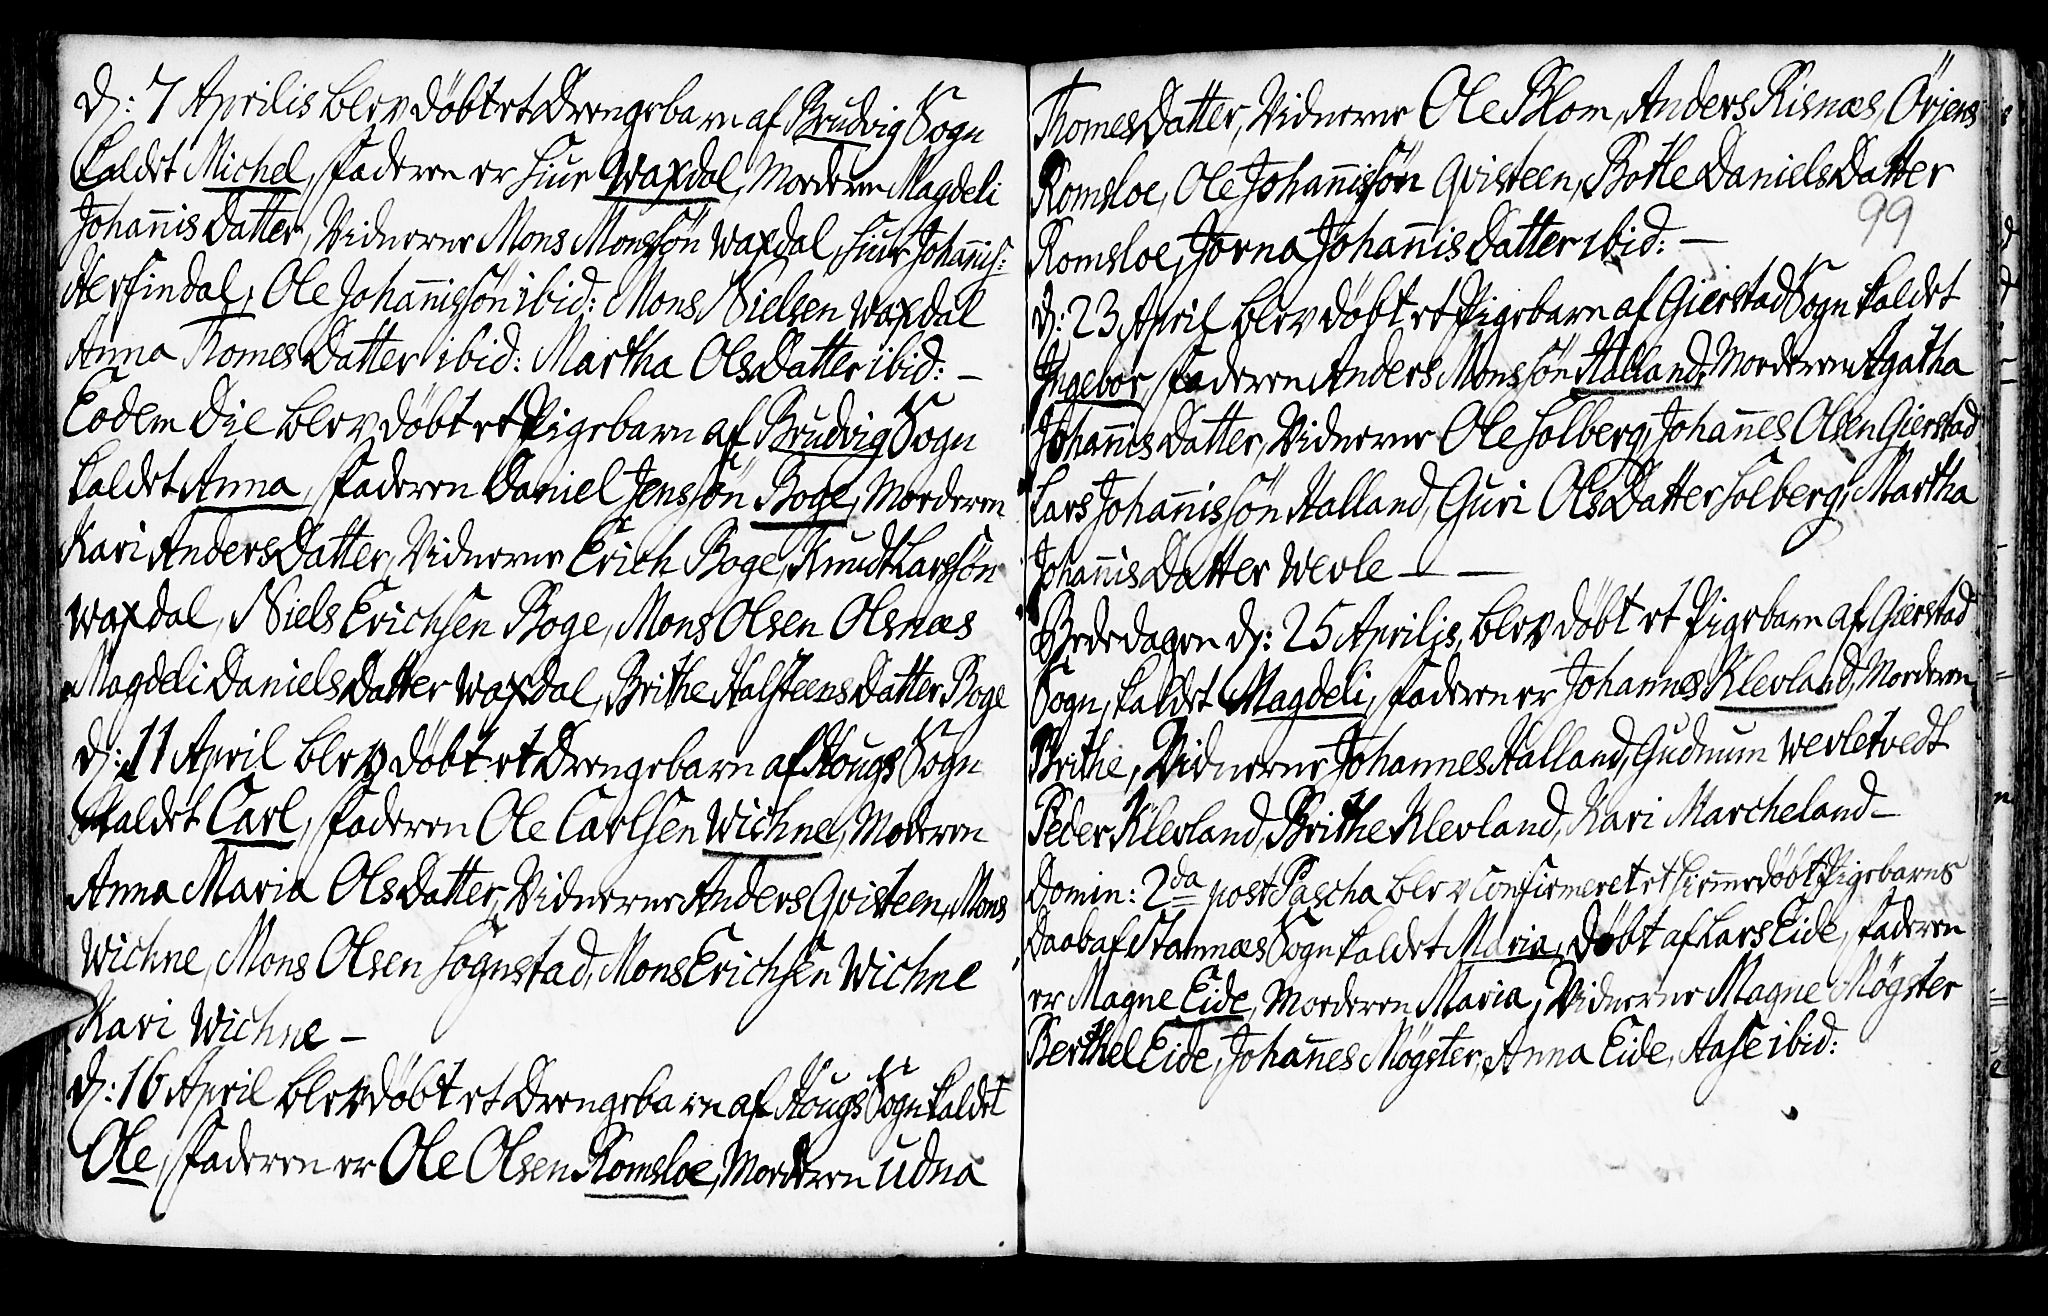 D: 7 Aprilis blev døbt et Drengebarn af Brudvig Sogn
kaldet Michel, Faderen er Siur Waxdal, Moderen Magdeli
Johan̄is Datter, Vidnerne Mons Monssøn Waxdal, Siur Johan̄is:
Herfindal, Ole Johan̄issøn ibid: Mons Nielsen Waxdal
Anna Thomes Datter ibid: Martha Ols Datter ibid: –
Eodem Die blev døbt et Pigebarn af Brudvig Sogn
kaldet Anna, Faderen Daniel Jenssøn Boge, Moderen
Kari Anders Datter, Vidnerne Erich Boge, Knudt Larssøn
Waxdal, Niels Erichsen Boge, Mons Olsen Olsnæs
Magdeli Daniels Datter Waxdal, Brithe Halsteens Datter Boge
D: 11 April blev døbt et Drengebarn af Hougs Sogn
kaldet Carl, Faderen Ole Carlsen Wichne, Moderen
Anna Maria Ols Datter, Vidnerne Anders Qvisteen, Mons
Wichne, Mons Olsen Sognstad, Mons Erichsen Wichne
Kari Wichne –
D: 16 April blev døbt et Drengebarn af Hougs Sogn kaldet
Ole, Faderen er Ole Olsen Romsloe, Moderen Udna
Thomes Datter, Vidnerne Ole Blom, Anders Risnæs, Ørjens
Romsloe, Ole Johan̄issøn Qvisteen, Bothe Daniels Datter
99
Romsloe, Jorna Johan̄is Datter ibid: –
D: 23 April blev døbt et Pigebarn af Gierstad Sogn kaldet
Ingebor, Faderen Anders Monssøn Halland, Moderen Agatha
Johan̄is Datter, Vidnerne Ole Solberg, Johan̄es Olsen Gierstad
Lars Johan̄issøn Halland, Guri Ols Datter Solberg, Martha
Johan̄is Datter Werle – –
Bededagen d: 25 Aprilis, blev døbt et Pigebarn af Gierstad
Sogn, kaldet Magdeli, Faderen er Johannes Klevland, Moderen
Brithe, Vidnerne Johannes Halland, Gudmum Werletvedt
Peder Klevland, Brithe Klevland, Kari Marcheland –
Domin: 2da post Pascha blev confirmeret et hiemedøbt Pigebarns
Daab af Stamnæs Sogn kaldet Maria, døbt af Lars Eide, Faderen
er Magne Eide, Moderen Maria, Vidnerne Magne Møgster
Berthel Eide, Johan̄es Møgster, Anna Eide, Aase ibid: